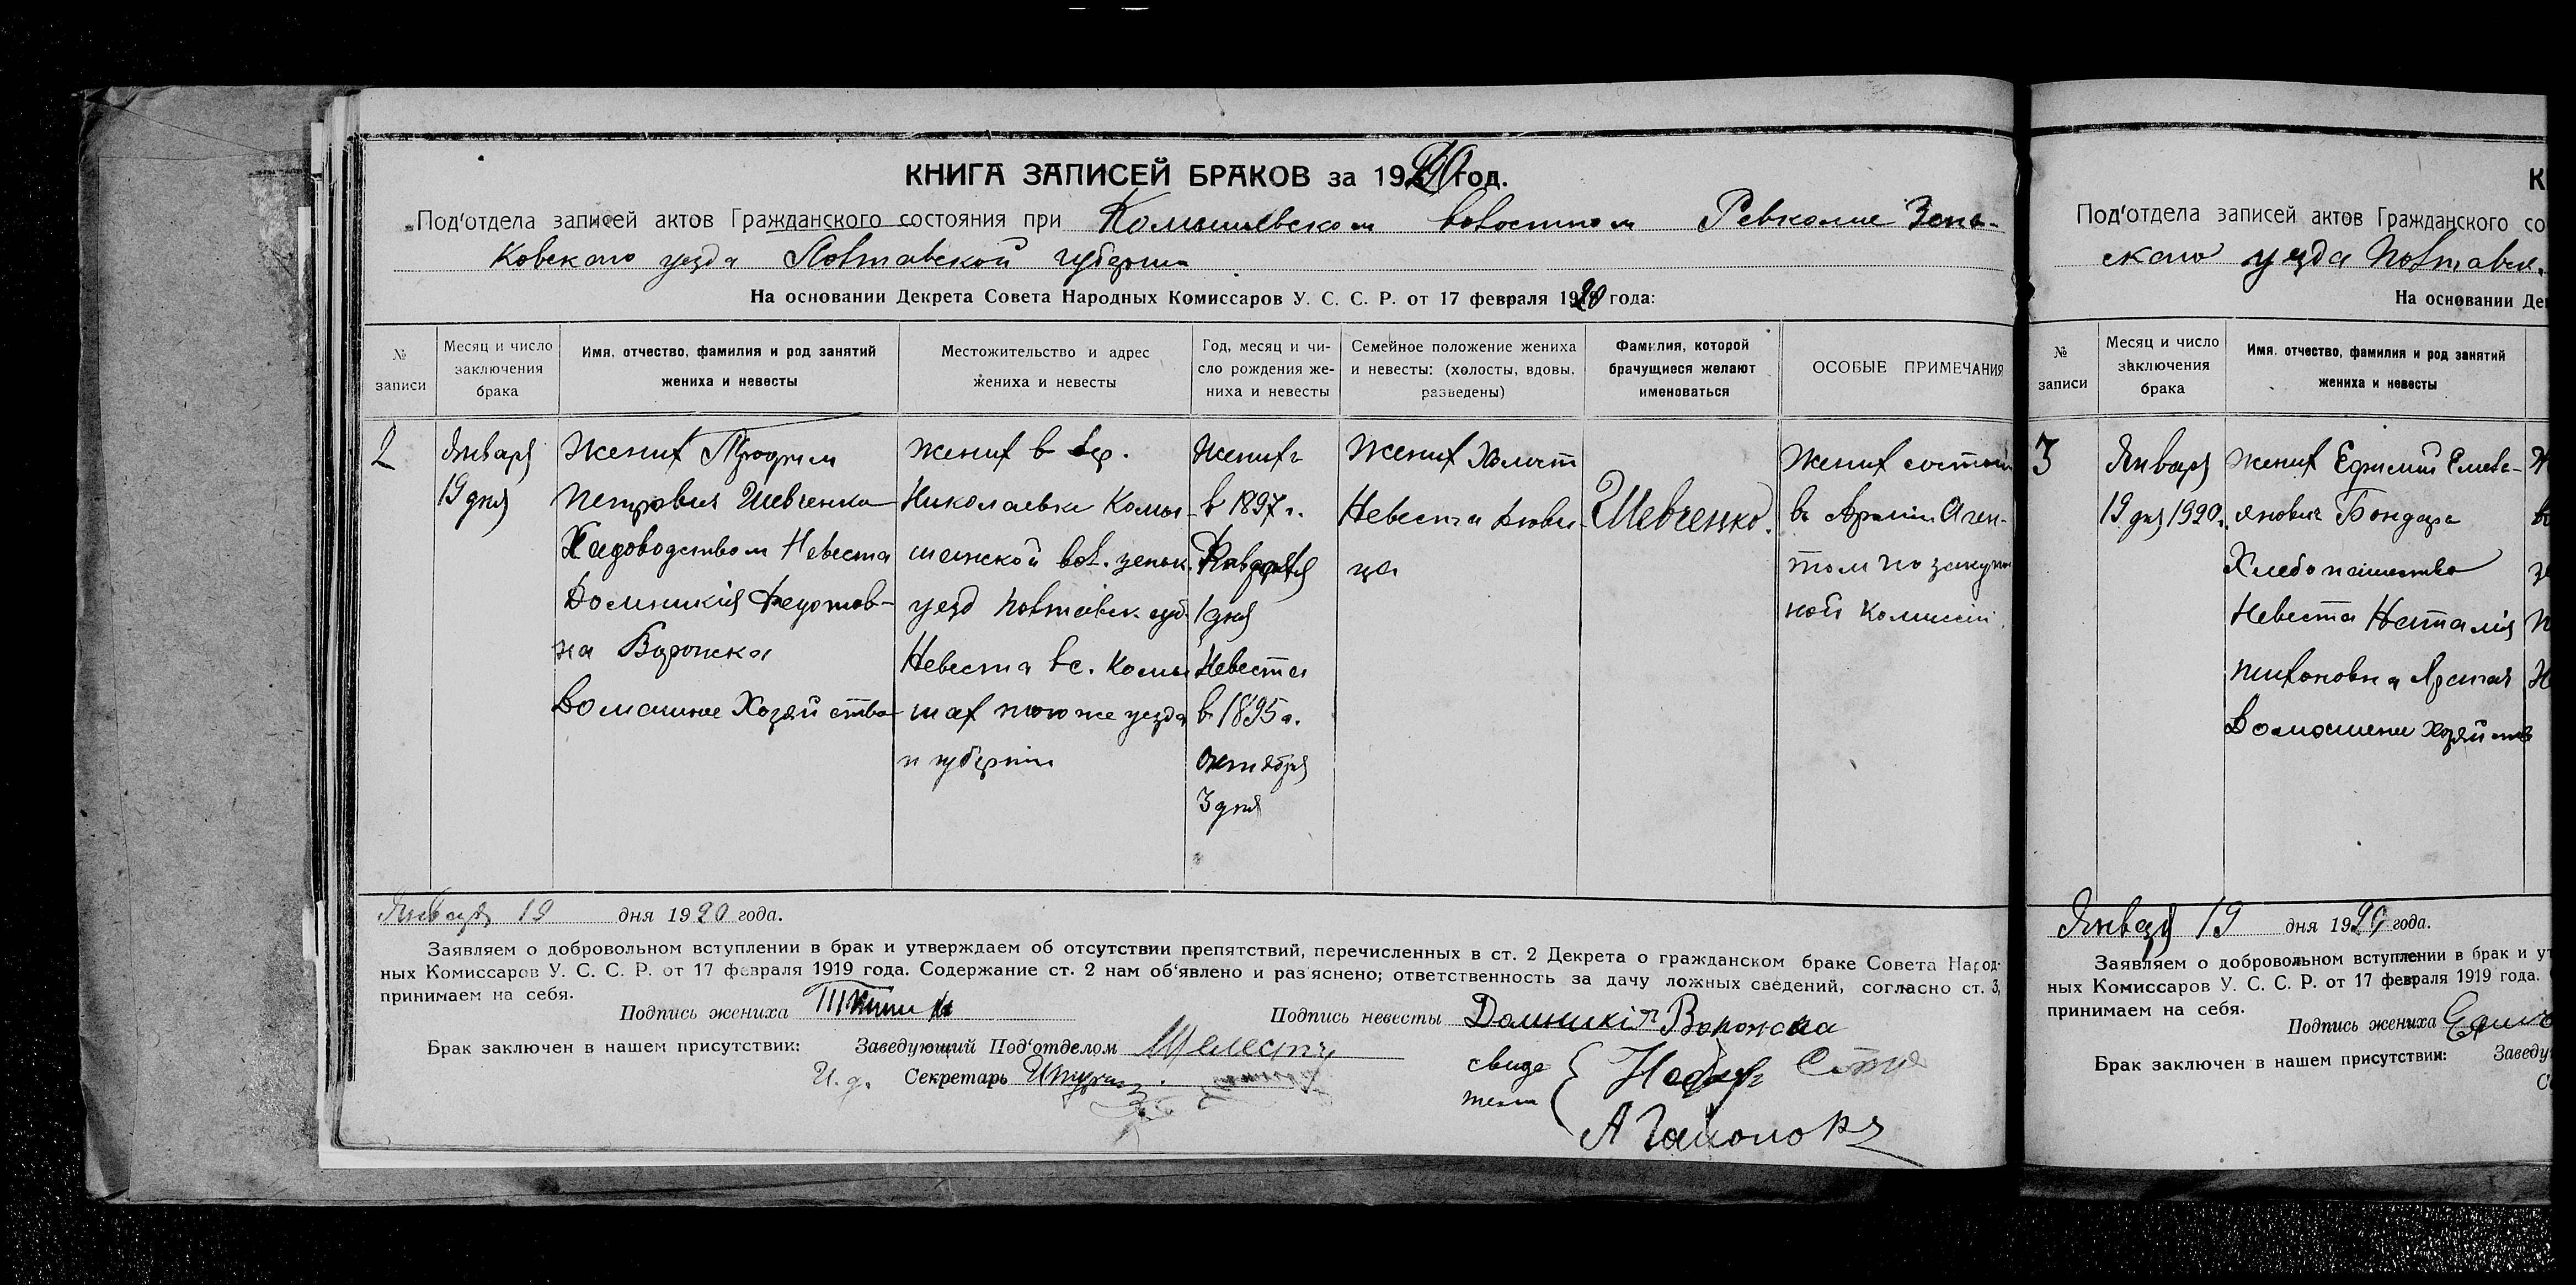 КНИГА ЗАПИСЕЙ БРАКОВ за 1920 год.
Под'отдела записей актов Гражданского состояния при Комышевском волостном Ревкоме Зень-
ковского уезда Полтавской губернии
На основании Декрета Совета Народных Комиссаров У. С. С. Р. от 17 февраля 1920 года:
№ записи
Месяц и число заключения брака
Имя, отчество, фамилия и род занятий жениха и невесты
Местожительство и адрес жениха и невесты
Год, месяц и число рождения жениха и невесты
Семейное положение жениха и невесты: (холосты, вдовы, разведены)
Фамилия, которой брачущиеся желают именоваться
ОСОБЫЕ ПРИМЕЧАНИЯ
2
Января
19 дня
Жених Трофим
Петрович Шевченко
Невеста
Домникія Федотов-
на Воронска
Домашнее Хозяйство
жених в дер.
Николаевки Комы-
шанской вол. зеньк.
уезд полтавск. губ.
Невеста в с. Комы
шах того же уезда
и губернии
Жених
в 1897 г.
1 дня
Невеста
в 1895 г.
октября
3 дня
Жених Холост
Невеста Вдови-
ца
Шевченко.
Жених состоит
в Армии Аген-
том по закупоч
ной комиссіи.
Января 19 дня 1920 года.
Заявляем о добровольном вступлении в брак и утверждаем об отсутствии препятствий, перечисленных в ст. 2 Декрета о гражданском браке Совета Народ-
ных Комиссаров У. С. С. Р. от 17 февраля 1919 года. Содержание ст. 2 нам об'явлено и раз'яснено; ответственность за дачу ложных сведений, согласно ст. 3,
принимаем на себя.
Подпись жениха
Подпись невесты Домникія Воронска
Брак заключен в нашем присутствии: Заведующий Под'отделом Шелест
И. д. Секретарь
свиде
тели
К
Под'отдела записей актов Гражданского со
ского уезда Полтавск.
На основании Де
№ записи
Месяц и число заключения брака
Имя, отчество, фамилия и род занятий жениха и невесты
3
Января
19 дня 1920.
жених Ефимий Емель-
янович Бондарь
Хлебопашество
Невеста Наталія
Домашнее хозяйств
Января 19 дня 1920 года.
Заявляем о добровольном вступлении в брак и ут
ных Комиссаров У. С. С. Р. от 17 февраля 1919 года.
принимаем на себя.
Подпись жениха
Брак заключен в нашем присутствии: Заведу